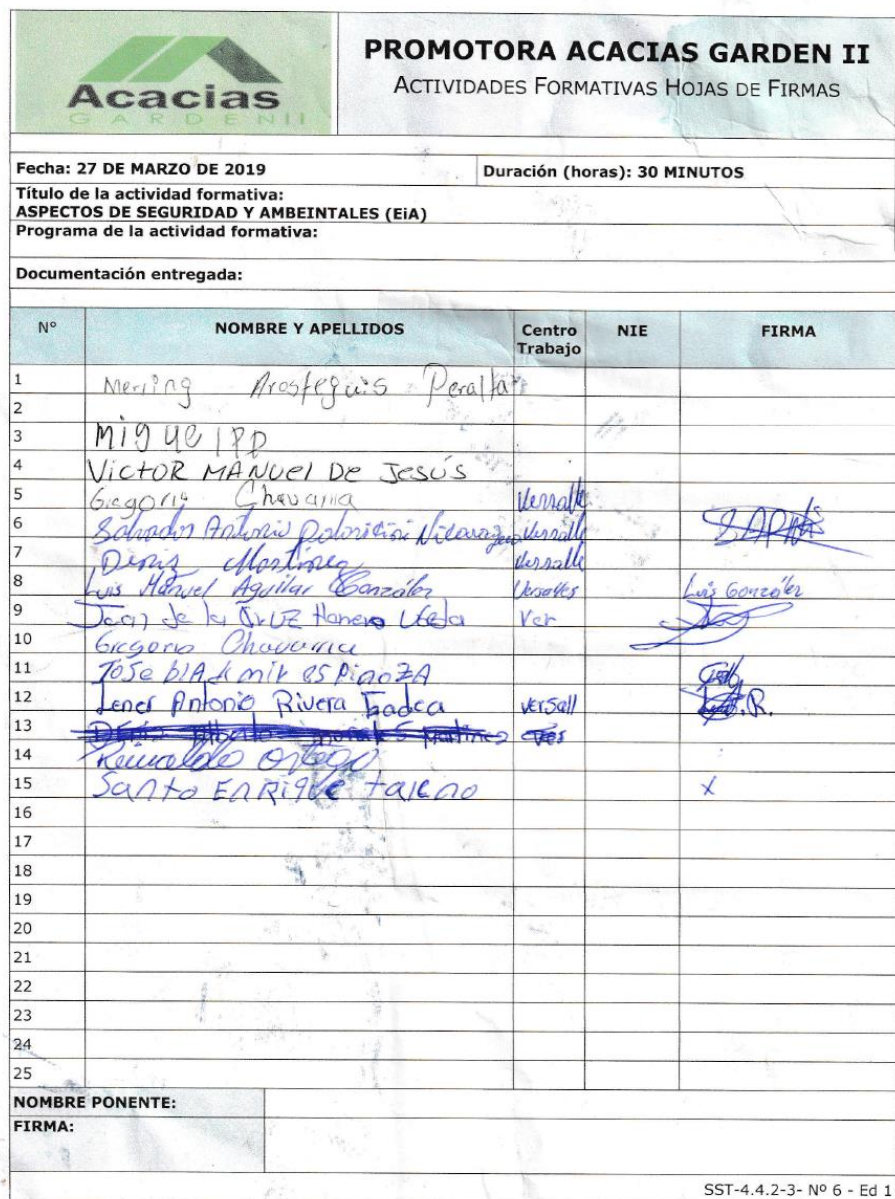 Acacias
GARDEN II
PROMOTORA ACACIAS GARDEN II
ACTIVIDADES FORMATIVAS HOJAS DE FIRMAS
Fecha: 27 DE MARZO DE 2019 Duración (horas): 30 MINUTOS
Título de la actividad formativa:
ASPECTOS DE SEGURIDAD Y AMBEINTALES (EiA)
Programa de la actividad formativa:
Documentación entregada:
Nº NOMBRE Y APELLIDOS Centro Trabajo NIE FIRMA
1 Merling Arosteguis Peralta
2
3 Miguel PD
4 VICTOR MANUEl De Jesús
5 Gregoria Chavarria Versalle
6 Salvador Antonio Nicaragua Versalle
7 Deniz Martinez Versalle
8 Luis Manuel Aguilar González Versalles Luis González
9 Juan de la CrUZ Ubeda Ver
10 Gregorio Chavarria
11 Jose blAdimir espinoZA
12 Lener Antonio Rivera Gadea versall
13
14 Reinaldo Ortega
15 Santo EnRiqve taleno X
16
17
18
19
20
21
22
23
24
25
NOMBRE PONENTE:
FIRMA:
SST-4.4.2-3- Nº 6 - Ed 1